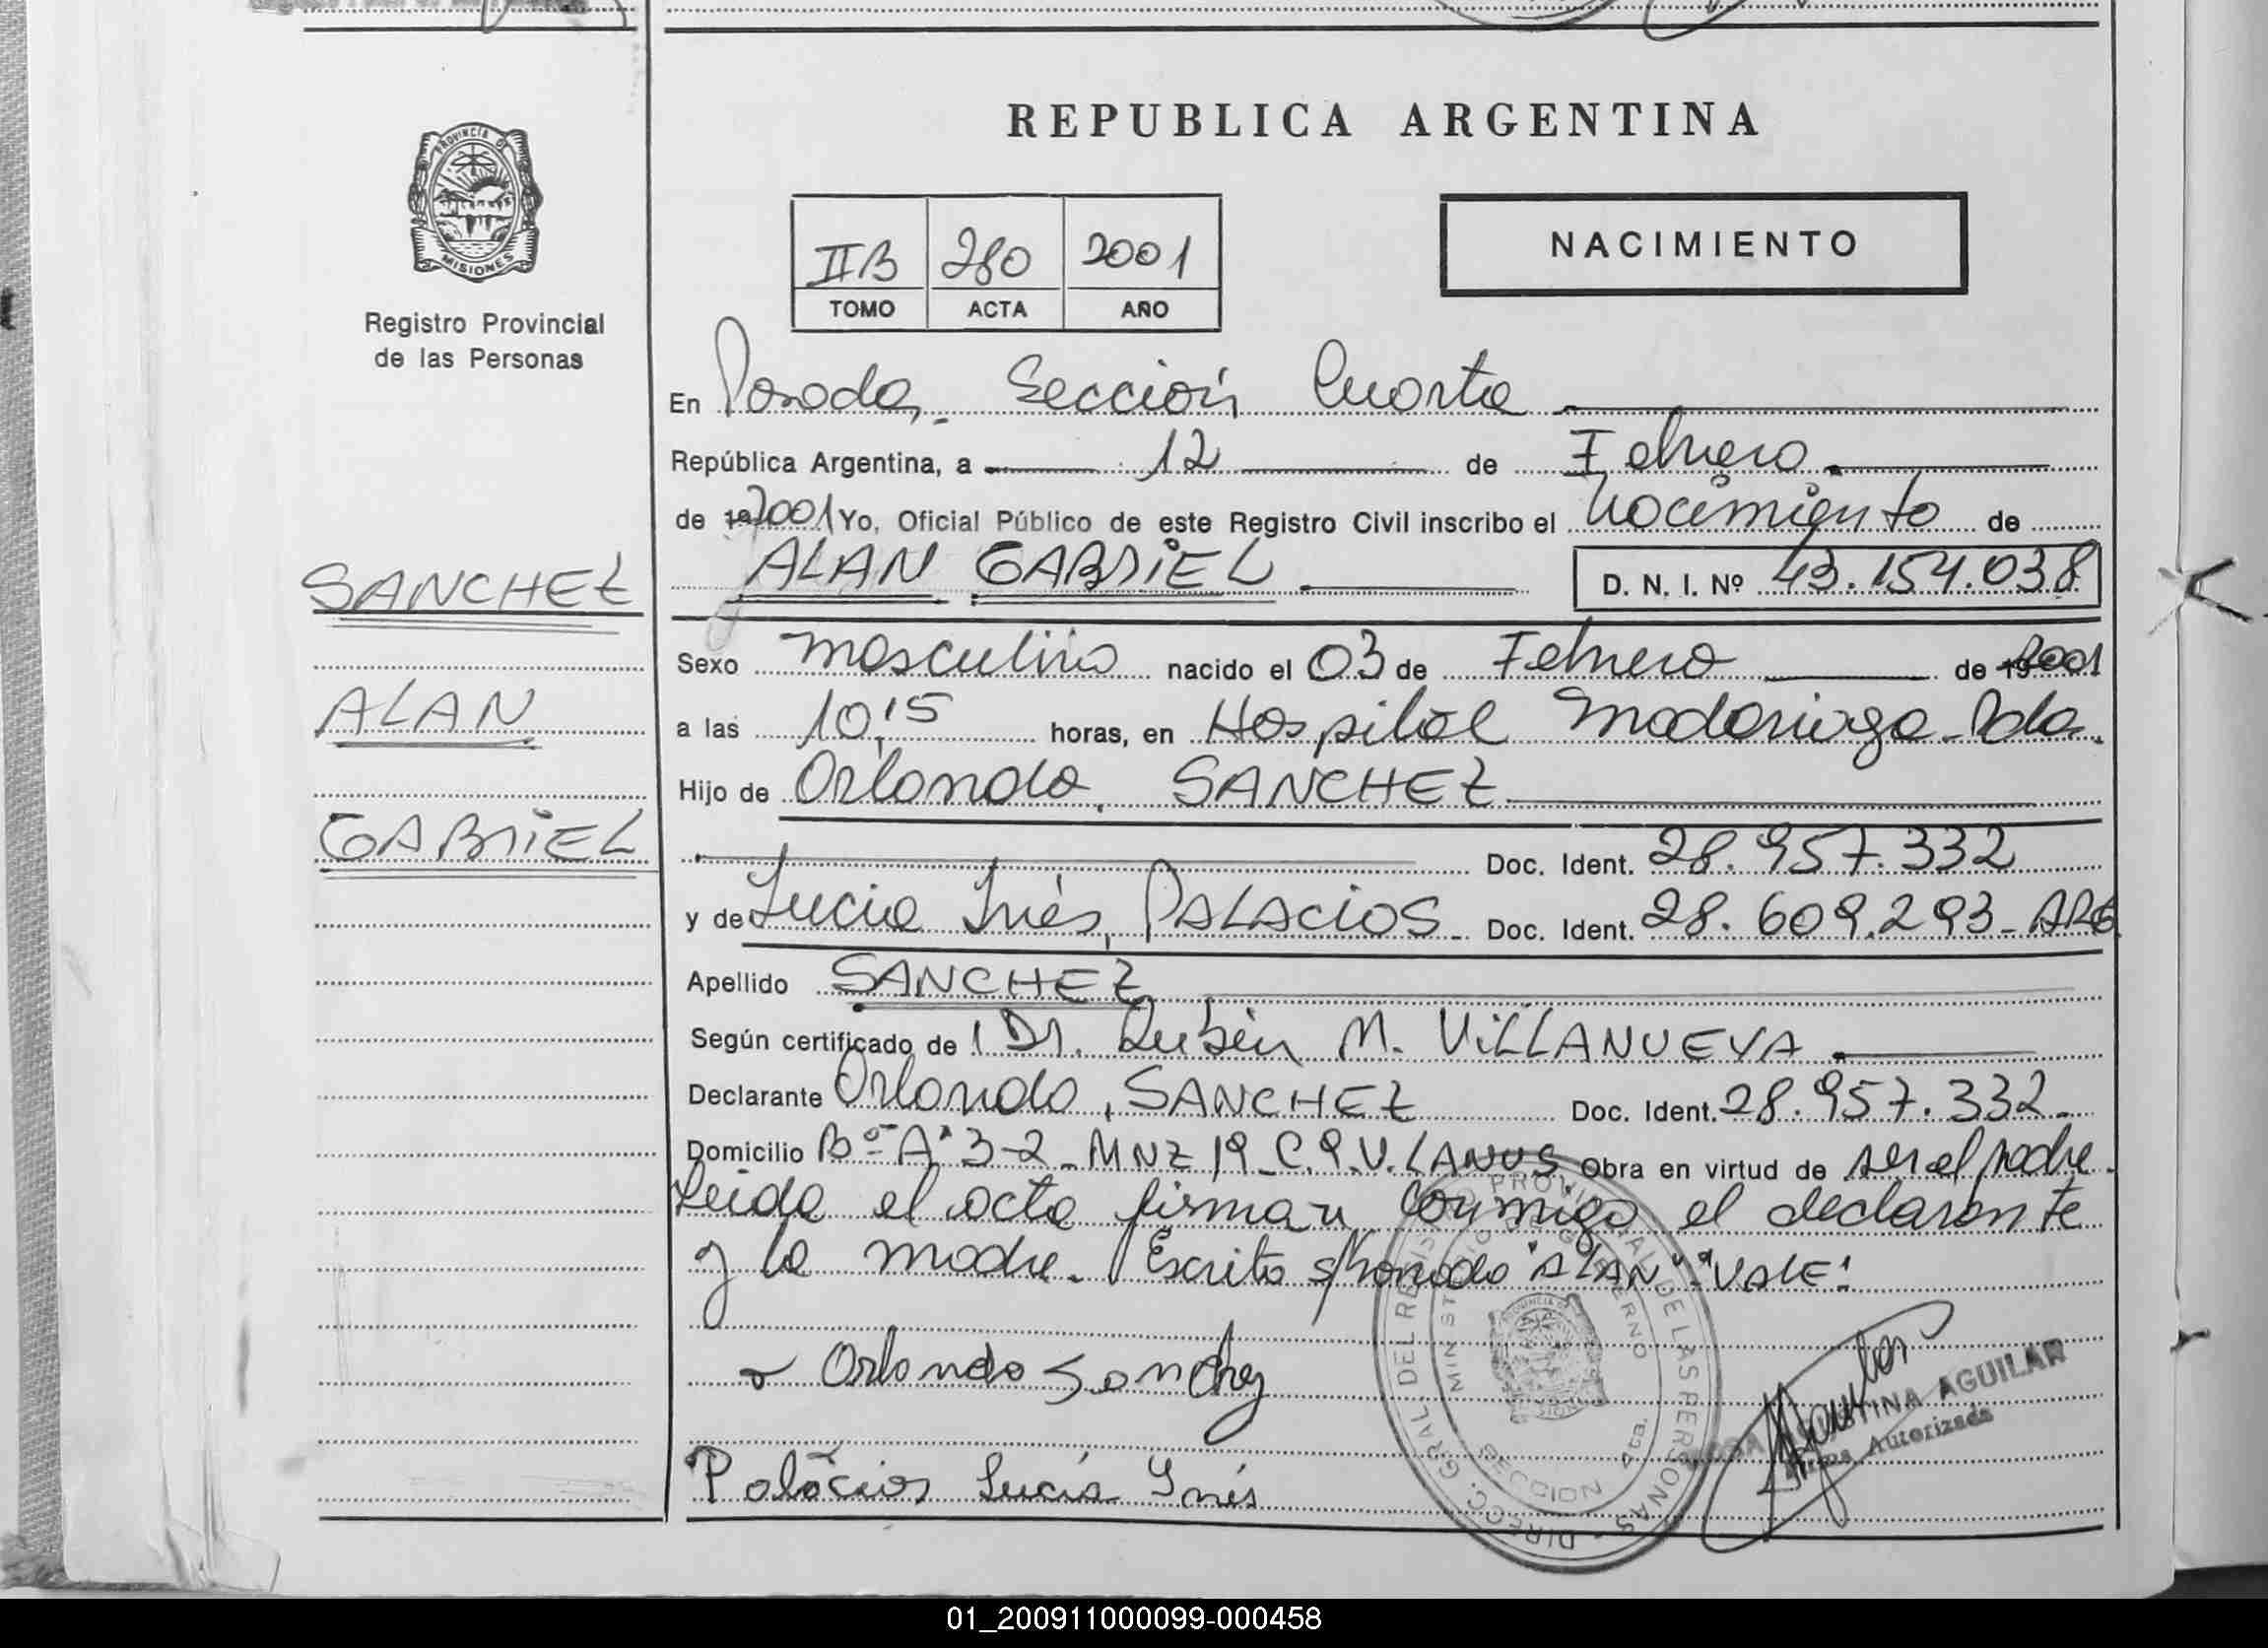 REPUBLICA ARGENTINA
PROVINCIA DE
MISIONES
Registro Provincial
de las Personas
IIB 280 2001
TOMO ACTA AÑO
NACIMIENTO
En Posadas, Sección Cuarta
República Argentina, a 12 de Febrero
de 19 2001 Yo, Oficial Público de este Registro Civil inscribo el Nacimiento de
ALAN GABRIEL D. N. I. Nº 43.154.038
SANCHEZ
ALAN
GABRIEL
Sexo masculino nacido el 03 de Febrero de 19 2001
a las 10,15 horas, en Hospital Madariaga - Pdas.
Hijo de Orlando, SANCHEZ
Doc. Ident. 28.957.332
y de Lucia Inés, PALACIOS - Doc. Ident. 28.609.293 - ARG
Apellido SANCHEZ
Según certificado de Dr. Rubén M. VILLANUEVA
Declarante Orlando, SANCHEZ Doc. Ident. 28.957.332 -
Domicilio Bº A 3-2 - MNZ 19 - C. 9 - V. LANUS Obra en virtud de ser el padre.
Leida el acta firman conmigo el declarante
y la madre. Escrito s/ "ALAN" "VALE"
Orlando Sanchez
Palácios Lucía Inés
DIRECC. GRAL. DEL REGISTRO PROVINCIAL DE LAS PERSONAS
MINISTERIO DE GOBIERNO
SECCION 4ta.
ROSA AGUSTINA AGUILAR
Firma Autorizada
01_200911000099-000458